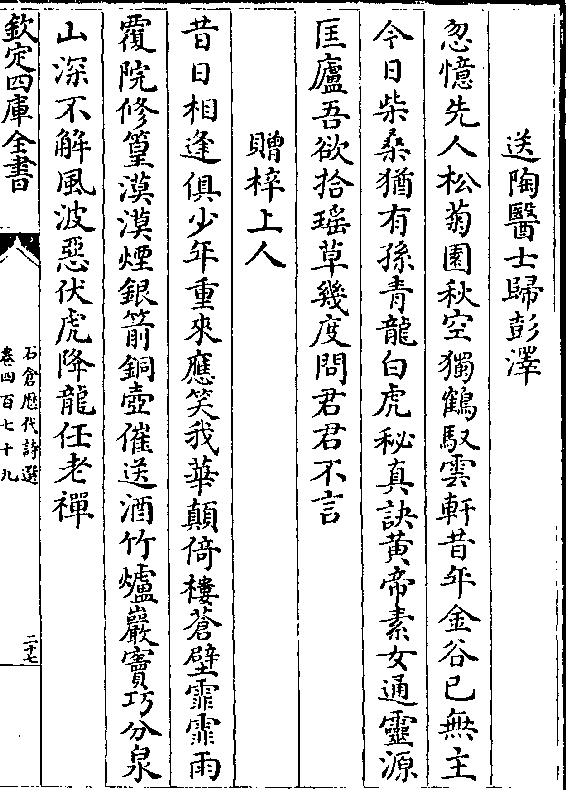 送陶醫士歸彭澤
忽憶先人松菊園秋空獨鶴馭雲軒昔年金谷已無主
今日柴桑猶有孫青龍白虎秘真訣黃帝素女通靈源
匡廬吾欲拾瑶草幾度問君君不言
贈梓上人
昔日相逢俱少年重來應笑我華顛倚樓蒼壁霏霏雨
覆院修篁漠漠煙銀箭銅壺催送酒竹爐巖竇巧分泉
山深不解風波惡伏虎降龍任老禪
欽定四庫全書
石倉歷代詩選
卷四百七十九
二十七